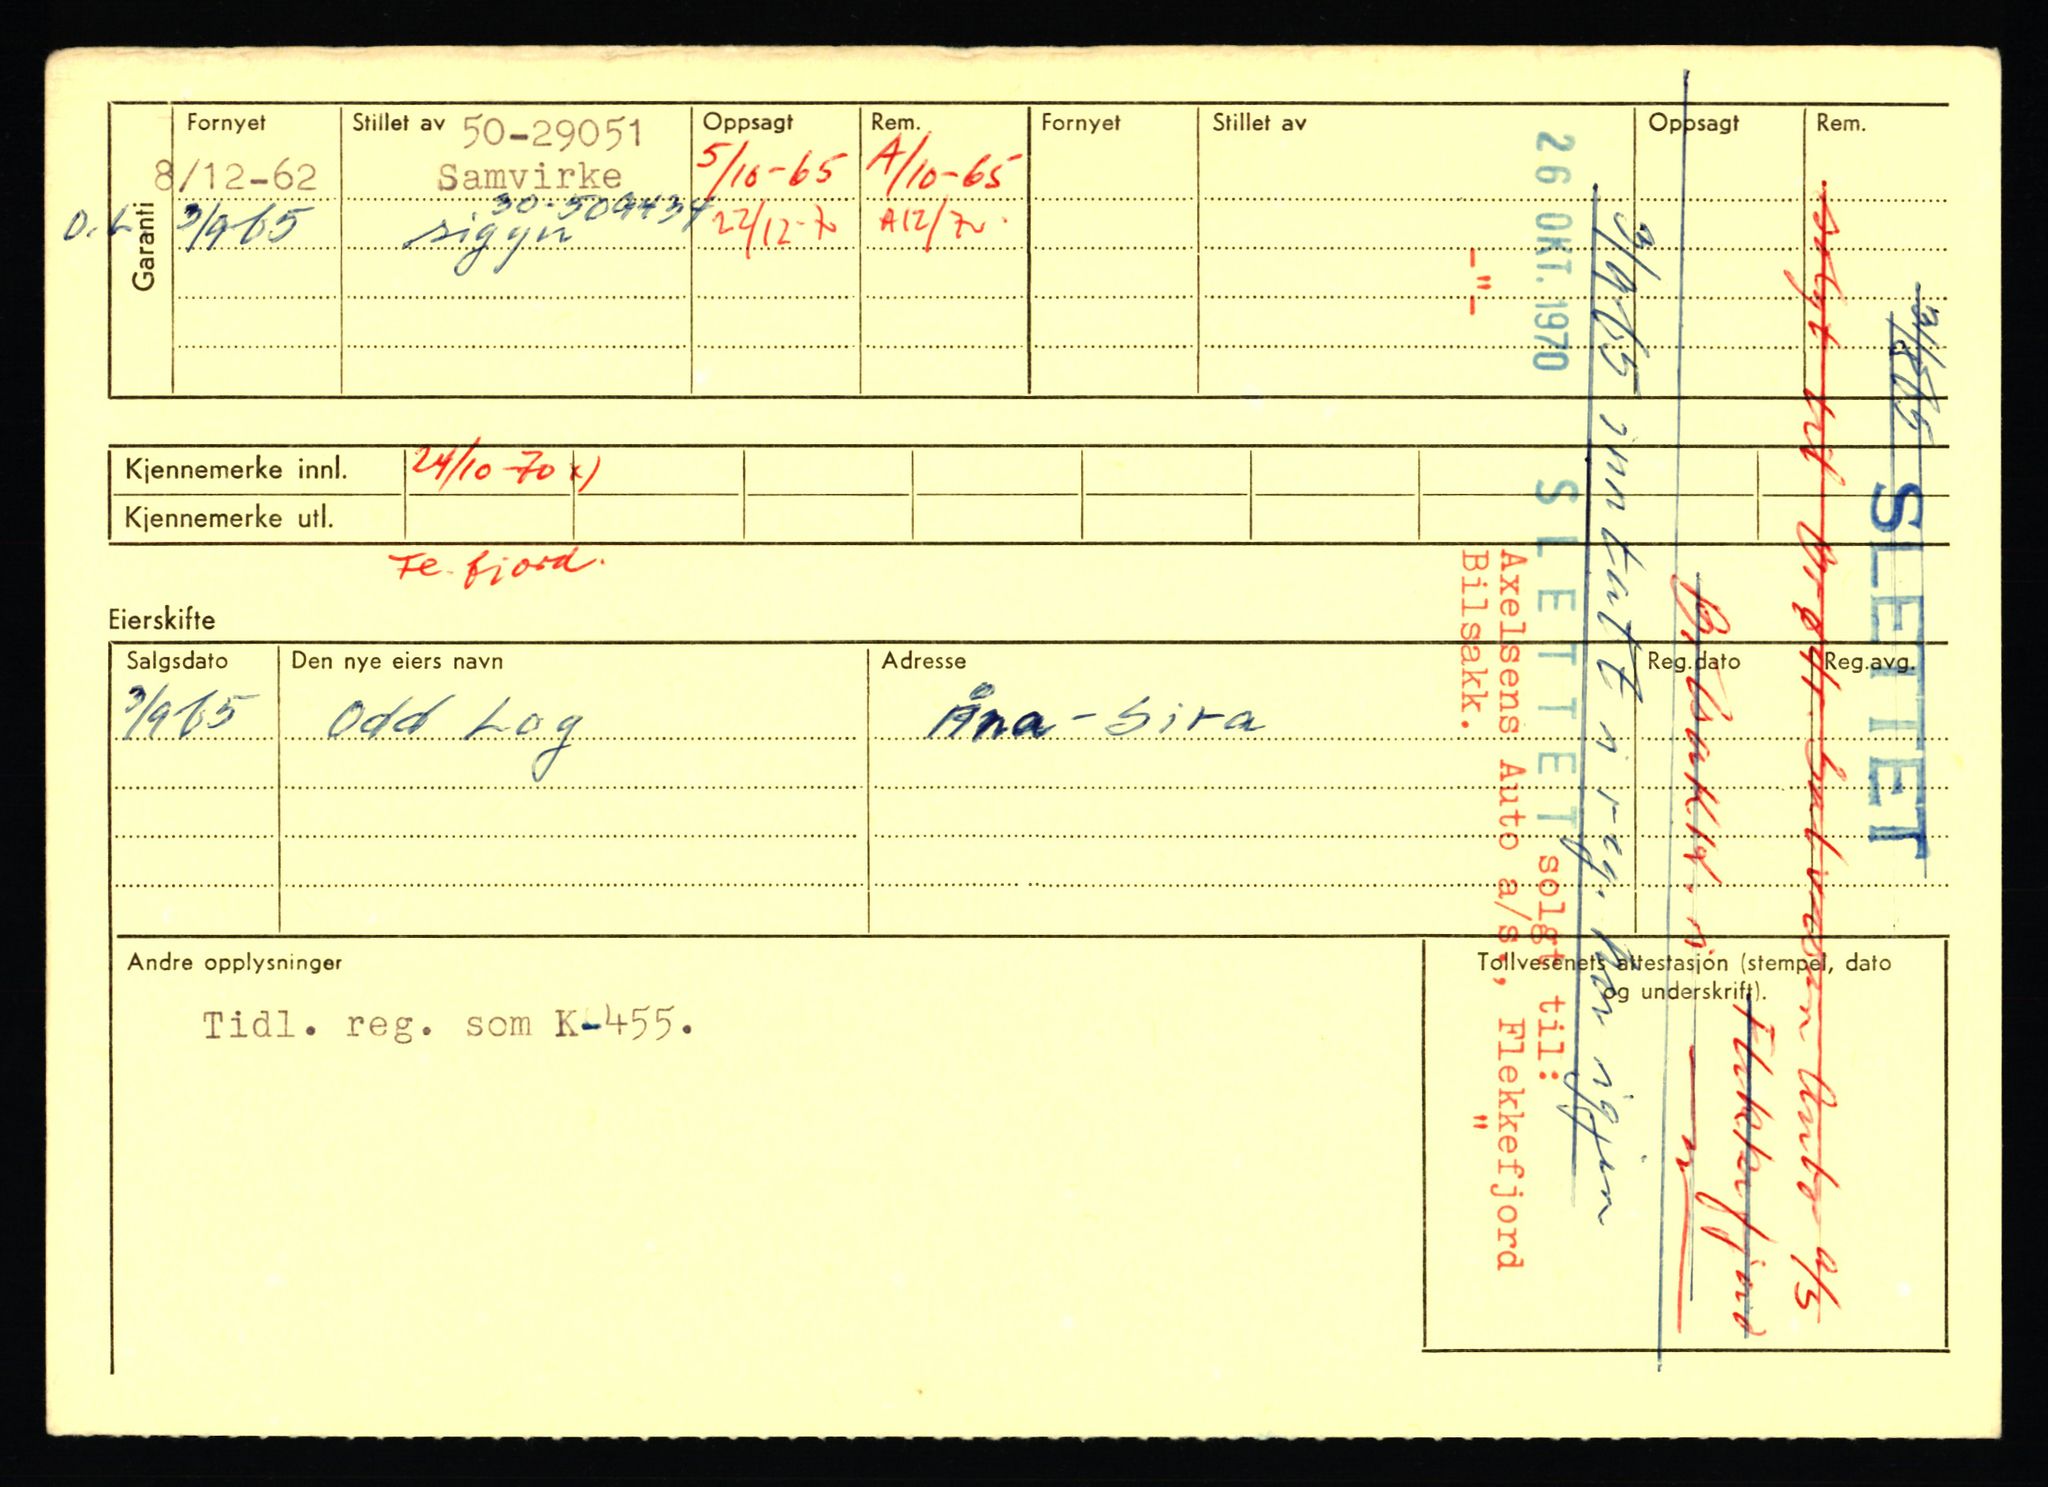 Garanti
Fornyet
Stillet av 50-29051
Oppsagt
Rem.
Fornyet
Stillet av
Oppsagt
Rem.
8/12-62
Samvirke
5/10-65
A/10-65
O.L
3/9 65
30-509434
sigyn
22/12-70
A12/70
Kjennemerke innl.
24/10-70 x)
Kjennemerke utl.
Fe.fjord.
Eierskifte
Salgsdato
Den nye eiers navn
Adresse
Reg.dato
Reg.avg.
3/9 65
Odd Log
Åna-Sira
Andre opplysninger
Tidl. reg. som K-455.
Tollvesenets attestasjon (stempel, dato
og underskrift).
SLETTET
solgt til
Flekkefjord
3/9 65 inntatt i reg. hos igjen
26 OKT. 1970 SLETTET solgt til:
Axelsens Auto a/s., Flekkefjord
-"- Bilsakk. "